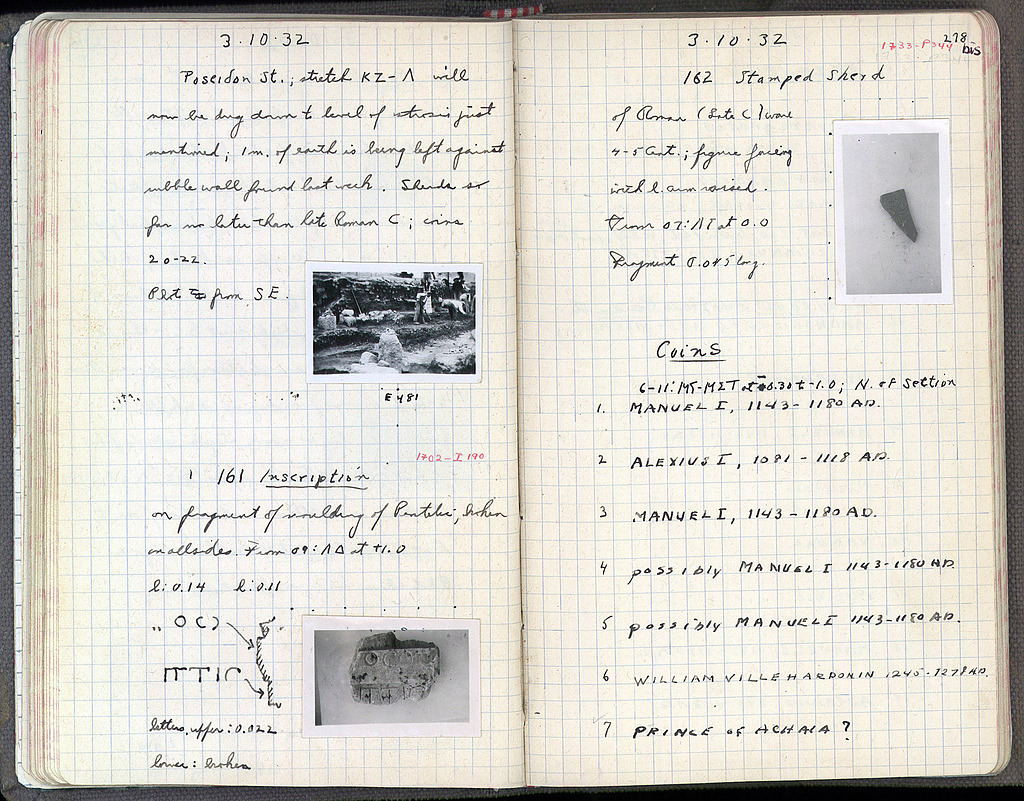 3·10·32
Poseidon St.; stretch KZ–Λ will
now be dug down to level of strosis just
mentioned; 1m. of earth is being left against
rubble wall found last week. Sherds so
far no later than late Roman C; coins
20-22.
from SE.
E 481
1702–I 190
161 Inscription
on fragment of moulding of Pentelic, broken
on all sides. From at +1.0
l: 0.14 l: 0.11
letters, upper: 0.022
lower: broken
3·10·32
1733–P344
278
bis
162 Stamped Sherd
of Roman (Late C) ware
4-5 Cent.; figure facing
with l. arm raised.
From at 0.0
Fragment 0.045 long.
Coins
-1.0; N. of Section
1. MANUEL I, 1143–1180 AD.
2 ALEXIUS I, 1081–1118 AD.
3 MANUEL I, 1143–1180 AD.
4 possibly MANUEL I 1143-1180 AD.
5 possibly MANUEL I 1143-1180 AD.
6 WILLIAM VILLEHARDOUIN 1245-1278 AD.
7 PRINCE OF ACHAIA?